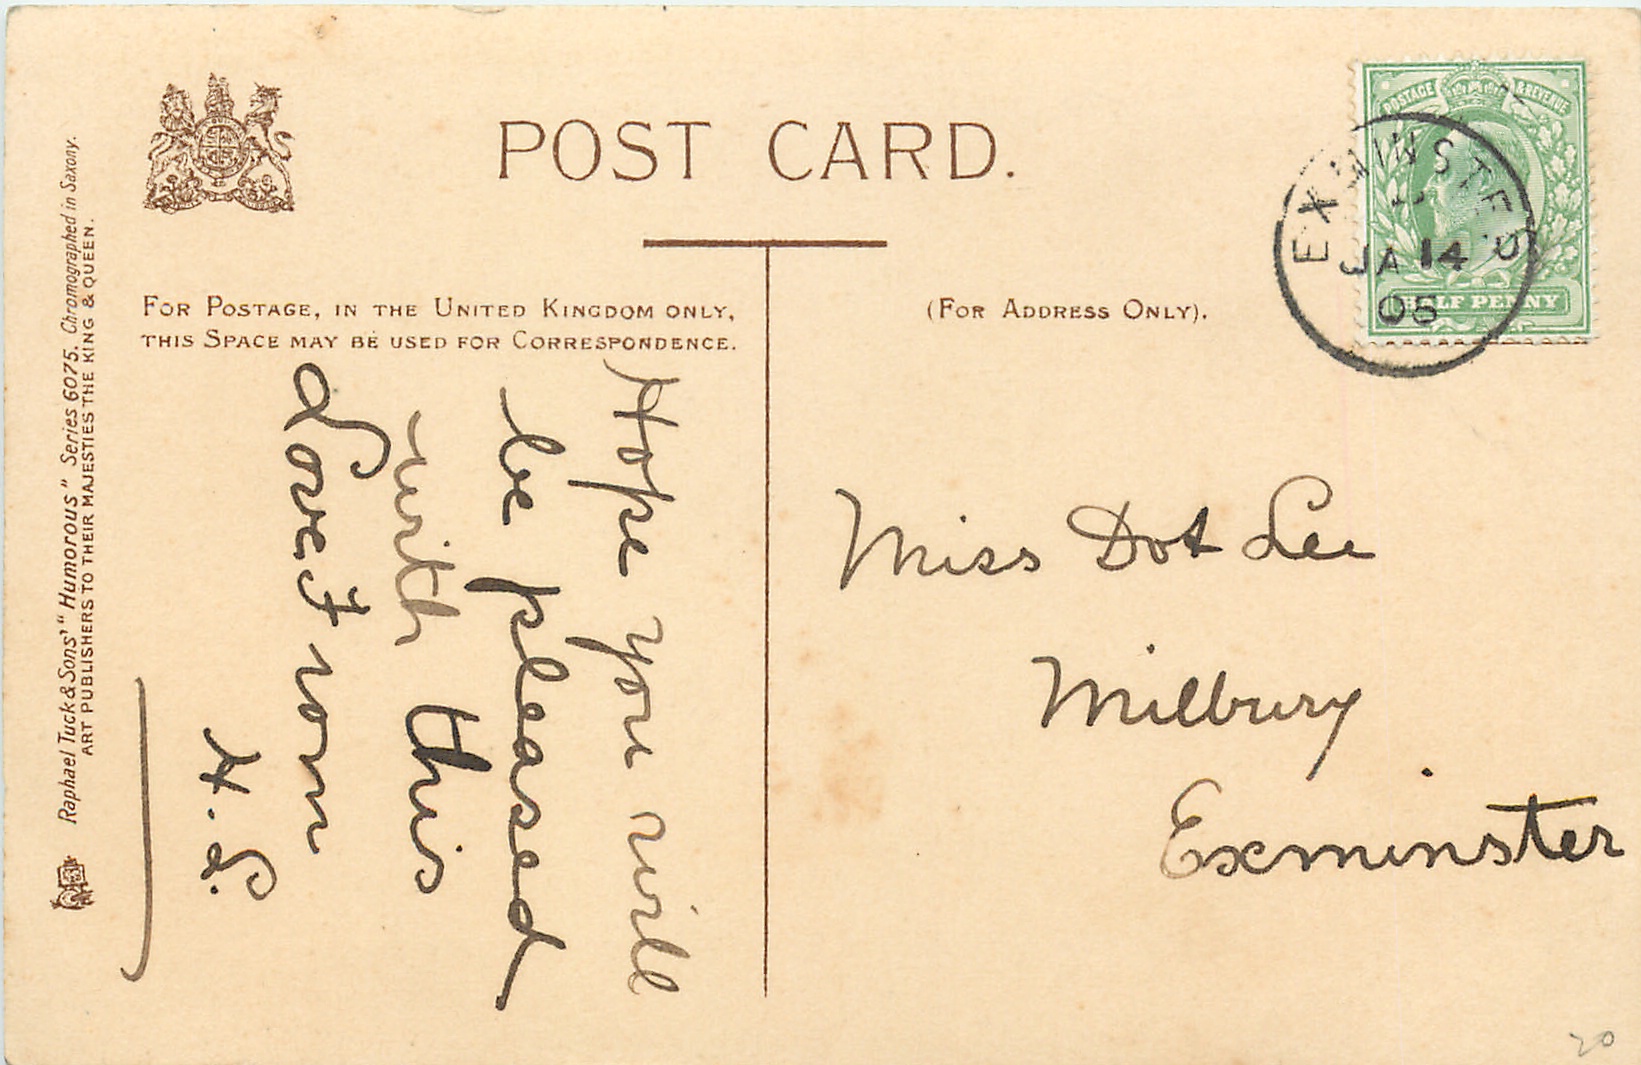 POST CARD.
FOR POSTAGE, IN THE UNITED KINGDOM ONLY,
THIS SPACE MAY BE USED FOR CORRESPONDENCE.
(FOR ADDRESS ONLY).
Raphael Tuck & Sons' "Humorous" Series 6075. Chromographed in Saxony.
ART PUBLISHERS TO THEIR MAJESTIES THE KING & QUEEN.
POSTAGE & REVENUE
HALF PENNY
EXMINSTER
JA 14
05
Hope you will
be pleased
with this
Love from
H. L.
Miss Dot Lee
Milbury
Exminster
20